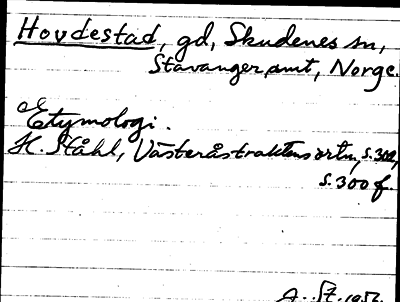 Hovdestad, gd, Skudenes sn,
Stavanger amt, Norge.
Etymologi.
H. Ståhl, Västeråstraktens ortn., s. 302,
s. 300 f.